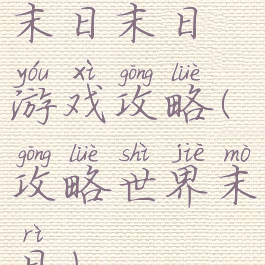 末日末日
yóu xì gōng lüè
游戏攻略(
gōng lüè shì jiè mò
攻略世界末
rì
日)